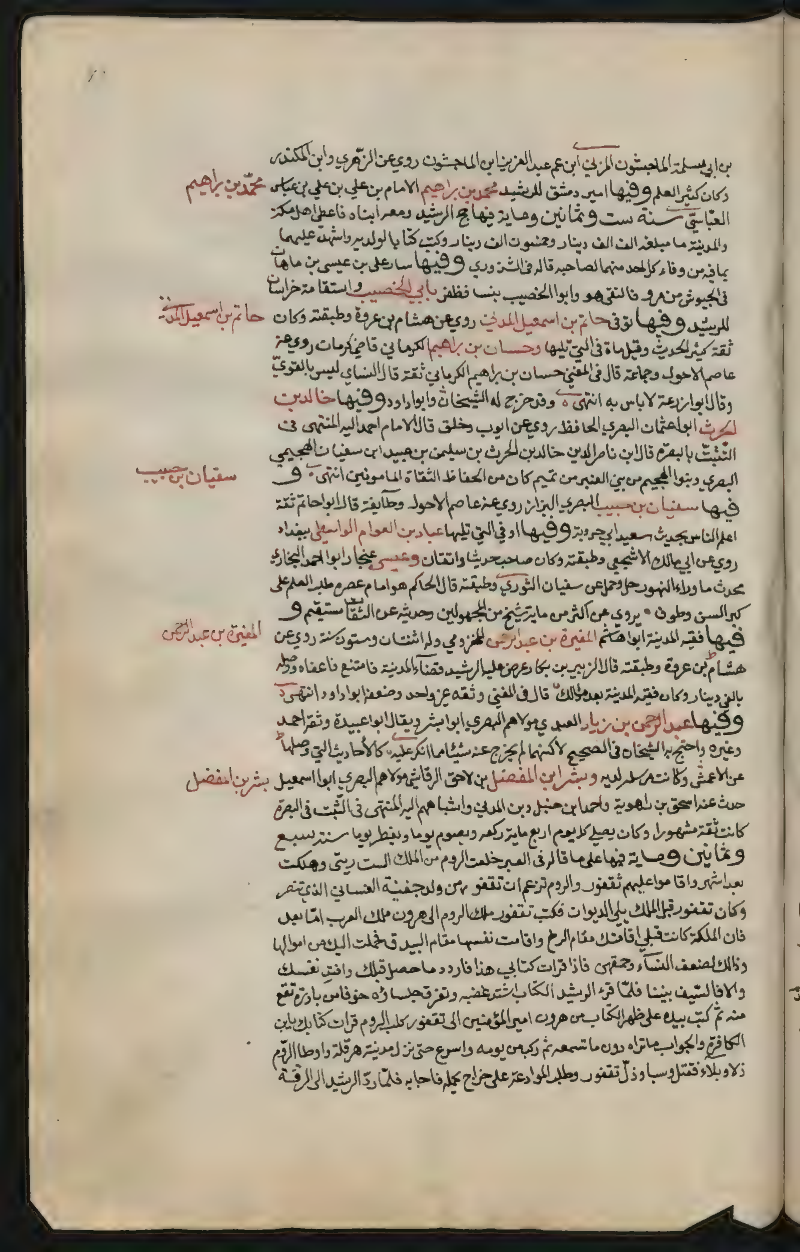 بن ابي سلمة الماجشون المدني ابن عم عبد العزيز ابن الماجشون روي عن الزهري وابن المكندر
وكان كثير العلم وفيها امير دمشق للرشيد محمد بن براهيم الامام بن علي بن علي بن عباس
محمد بن براهيم
العباسي سنة ست وثمانين وماية فيها حج الرشيد ومعه ابناه فاعطى اهل مكة
والمدينة ما مبلغه الف الف دينار وخمسون الف دينار وكتب كتابا لولديه واشهد عليهما
بما فيه من وفاء كل احد منهما لصاحبه قاله في الشذوري وفيها سار علي بن عيسى بن ماهان
في الجيوش من مرو فالتقى هو وابو الخصيب بنسا فظفر بابي الخصيب واستقامة خراسان
للرشيد وفيها توفى حاتم بن اسمعيل المدني روي عن هشام بن عروة وطبقته وكان
حاتم بن اسمعيل المدني
ثقة كثير الحديث وقيل مات في التي تليها وحسان بن براهيم الكرماني قاضي كرمان روي عن
عاصم الاحول وجماعة قال في المغني حسان بن براهيم الكرماني ثقة قال النساي ليس بالقوي
وقال ابو ازرعة لاباس به انتهى وقد خرج له الشيخان وابوا داود وفيها خالد بن
الحرث ابوا عثمان البصري الحافظ روي عن ايوب وخلق قال الامام احمد اليه المنتهى في
التثبت بالبصرة قال ابن ناصر الدين خالد بن الحرث بن سليمن بن عبيد ابن سفيان الهجيمي
البصري وبنوا الهجيم من بني العنبر من تميم كان من الحفاظ الثقاة المامونين انتهى و
سفيان بن حبيب
فيها سفيان بن حبيب البصري البزاز روي عن عاصم الاحول وطايفة قال ابوا حاتم ثقة
اعلم الناس بحديث سعيد ابي عروبة وفيها او في التي تليها عباد بن العوام الواسطي ببغداد
روي عن ابي مالك الاشجعي وطبقته وكان صاحب حديث واتقان وعيسى غنجار ابوا احمد البخاري
محدث ما وراء النهر رحل وحمل عن سفيان الثوري وطبقته قال الحاكم هو امام عصره طلب العلم على
كبر السن وطوف يروي عن اكثر من ماية شيخ من المجهولين وحديثه عن الثقات مستقيم و
فيها فقيه المدينة ابوا هاشم المغيرة بن عبد الرحمن المخزومي وله اثنتان وستون سنة روي عن
المغيرة بن عبد الرحمن
هشام بن عروة وطبقته قال الزبير بن بكار عرض عليه الرشيد قضاء المدينة فامتنع فاعفاه ووصله
بالفي دينار وكان فقيه المدينة بعد مالك قال في المغني وثقه غير واحد وضعفه ابوا داود انتهى
وفيها عبد الرحمن بن زياد العبدي مولاهم البصري ابوا بشر ويقال ابوا عبيدة وثقه احمد
وغيره واحتج به الشيخان في الصحيح لاكنهما لم يخرج عنه شيئا مما انكر عليه كالأحاديث التي وصلها
عن الاعمش وكانت مرسلة لديه وبشر ابن المفضل بن لاحق الرقاشي مولاهم البصري ابوا اسمعيل
بشر بن المفضل
حدث عنه اسحق بن راهوية واحمد ابن حنبل وبن المديني واشباههم اليه المنتهى في التثبت في البصرة
كانت ثقة مشهورا وكان يصلي كل يوم اربع ماية ركعة ويصوم يوما ويفطر يوما سنة سبع
وثمانين وماية فيها على ما قاله في العبر خلعت الروم من الملك الست ريني وهلكت
بعد اشهر واقاموا عليهم نقفور والروم تزعم ان نقفور من ولد جفنة الغساني الذي تنصر
وكان نقفور قبل الملك يلي الديوان فكتب نقفور ملك الروم الى هرون ملك العرب اما بعد
فان الملكة كانت قبلي اقامتك مقام الرخ واقامت نفسها مقام البيدق فحملت اليك من اموالها
وذالك لضعف النساء وحمقهن فاذا قرات كتابي هذا فاردد ما حصل قبلك وافتد نفسك
والا فالسيف بيننا فلما قرء الرشيد الكتاب اشتد غضبه وتفرق جلساؤه خوفا من بادرة تقع
منه ثم كتب بيده على ظهر الكتاب من هرون امير المؤمنين الى نقفور كلب الروم قرات كتابك يابن
الكافرة والجواب ما تراه دون ما تسمعه ثم ركب من يومه واسرع حتى نزل مدينة هرقلة واوطا الروم
ذلا وبلاء فقتل وسبا وذل نقفور وطلب الموادعة على خراج يحمله فاجابه فلما رد الرشيد الى الرقة